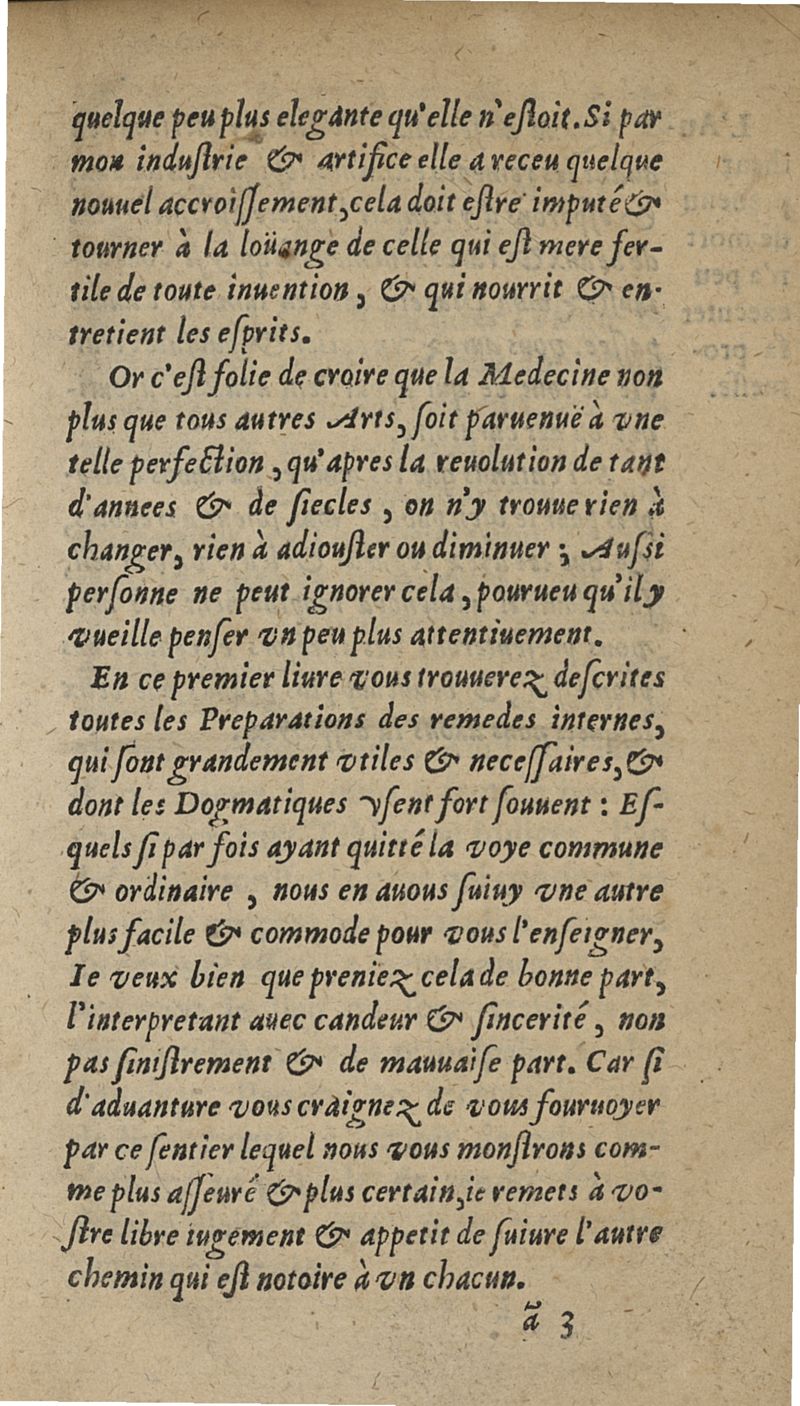 quelque peu plus elegante qu'elle n'eſtoit. Si par
mon induſtrie & artifice elle a receu quelque
nouuel accroiſſement, cela doit eſtre imputé &
tourner à la loüange de celle qui eſt mere fer-
tile de toute inuention, & qui nourrit & en-
tretient les eſprits.
Or c'eſt folie de croire que la Medecine non
plus que tous autres Arts, ſoit paruenuë à vne
telle perfection, qu'apres la reuolution de tant
d'annees & de ſiecles, on n'y trouue rien à
changer, rien à adiouſter ou diminuer; Auſſi
perſonne ne peut ignorer cela, pourueu qu'il y
vueille penſer vn peu plus attentiuement.
En ce premier liure vous trouuerez deſcrites
toutes les Preparations des remedes internes,
qui ſont grandement vtiles & neceſſaires, &
dont les Dogmatiques vſent fort ſouuent: Eſ-
quels ſi par fois ayant quitté la voye commune
& ordinaire, nous en auous ſuiuy vne autre
plus facile & commode pour vous l'enſeigner,
Ie veux bien que preniez cela de bonne part,
l'interpretant auec candeur & ſincerité, non
pas ſiniſtrement & de mauuaiſe part. Car ſi
d'aduanture vous craignez de vous fouruoyer
par ce ſentier lequel nous vous monſtrons com-
me plus aſſeuré & plus certain, ie remets à vo-
ſtre libre iugement & appetit de ſuiure l'autre
chemin qui eſt notoire à vn chacun.
ã 3